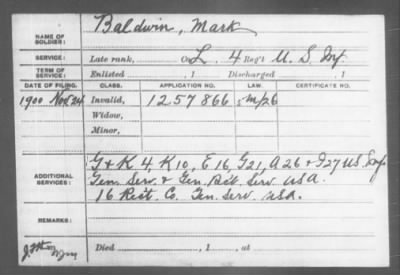 NAME OF SOLDIER: Baldwin, Mark
SERVICE: Late rank, Co. L, 4 Reg't U.S. Inf
TERM OF SERVICE: Enlisted , 1 Discharged , 1
DATE OF FILING. CLASS. APPLICATION NO. LAW. CERTIFICATE NO.
1900 Nov. 24 Invalid, 1257866
Widow,
Minor,
ADDITIONAL SERVICES: G + K 4, K 10, E 16, G 21, A 26 + G 27 U.S. Inf
Gen. Serv. + Gen. Rct. Serv. USA.
16 Rct. Co. Gen. Serv. USA.
REMARKS:
Died , 1 , at